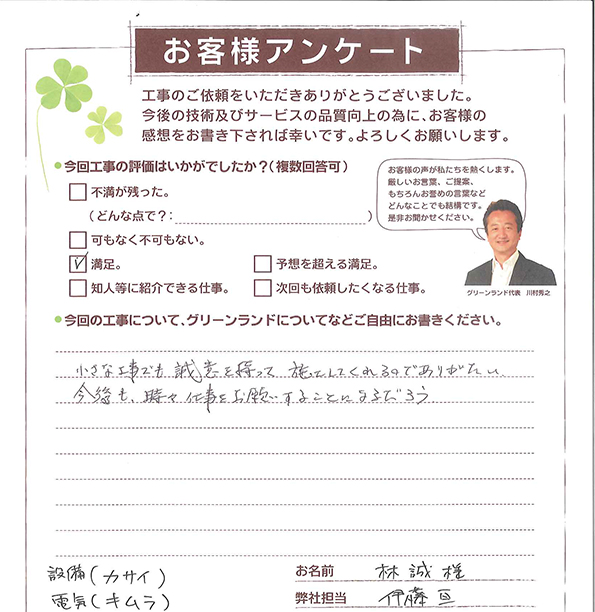 お客様アンケート
工事のご依頼をいただきありがとうございました。
今後の技術及びサービスの品質向上の為に、お客様の
感想をお書き下されば幸いです。よろしくお願いします。
今回工事の評価はいかがでしたか？（複数回答可）
不満が残った。
（どんな点で？：　）
可もなく不可もない。
満足。
予想を超える満足。
知人等に紹介できる仕事。
次回も依頼したくなる仕事。
お客様の声が私たちを熱くします。
厳しいお言葉、ご提案、
もちろんお誉めの言葉など
どんなことでも結構です。
是非お聞かせください。
グリーンランド代表　川村秀之
今回の工事について、グリーンランドについてなどご自由にお書きください。
小さな工事でも誠意を持って施工してくれるのでありがたい
今後も、時々仕事をお願いすることになるだろう
設備（カサイ）
電気（キムラ）
お名前　林誠様
弊社担当　伊藤亘